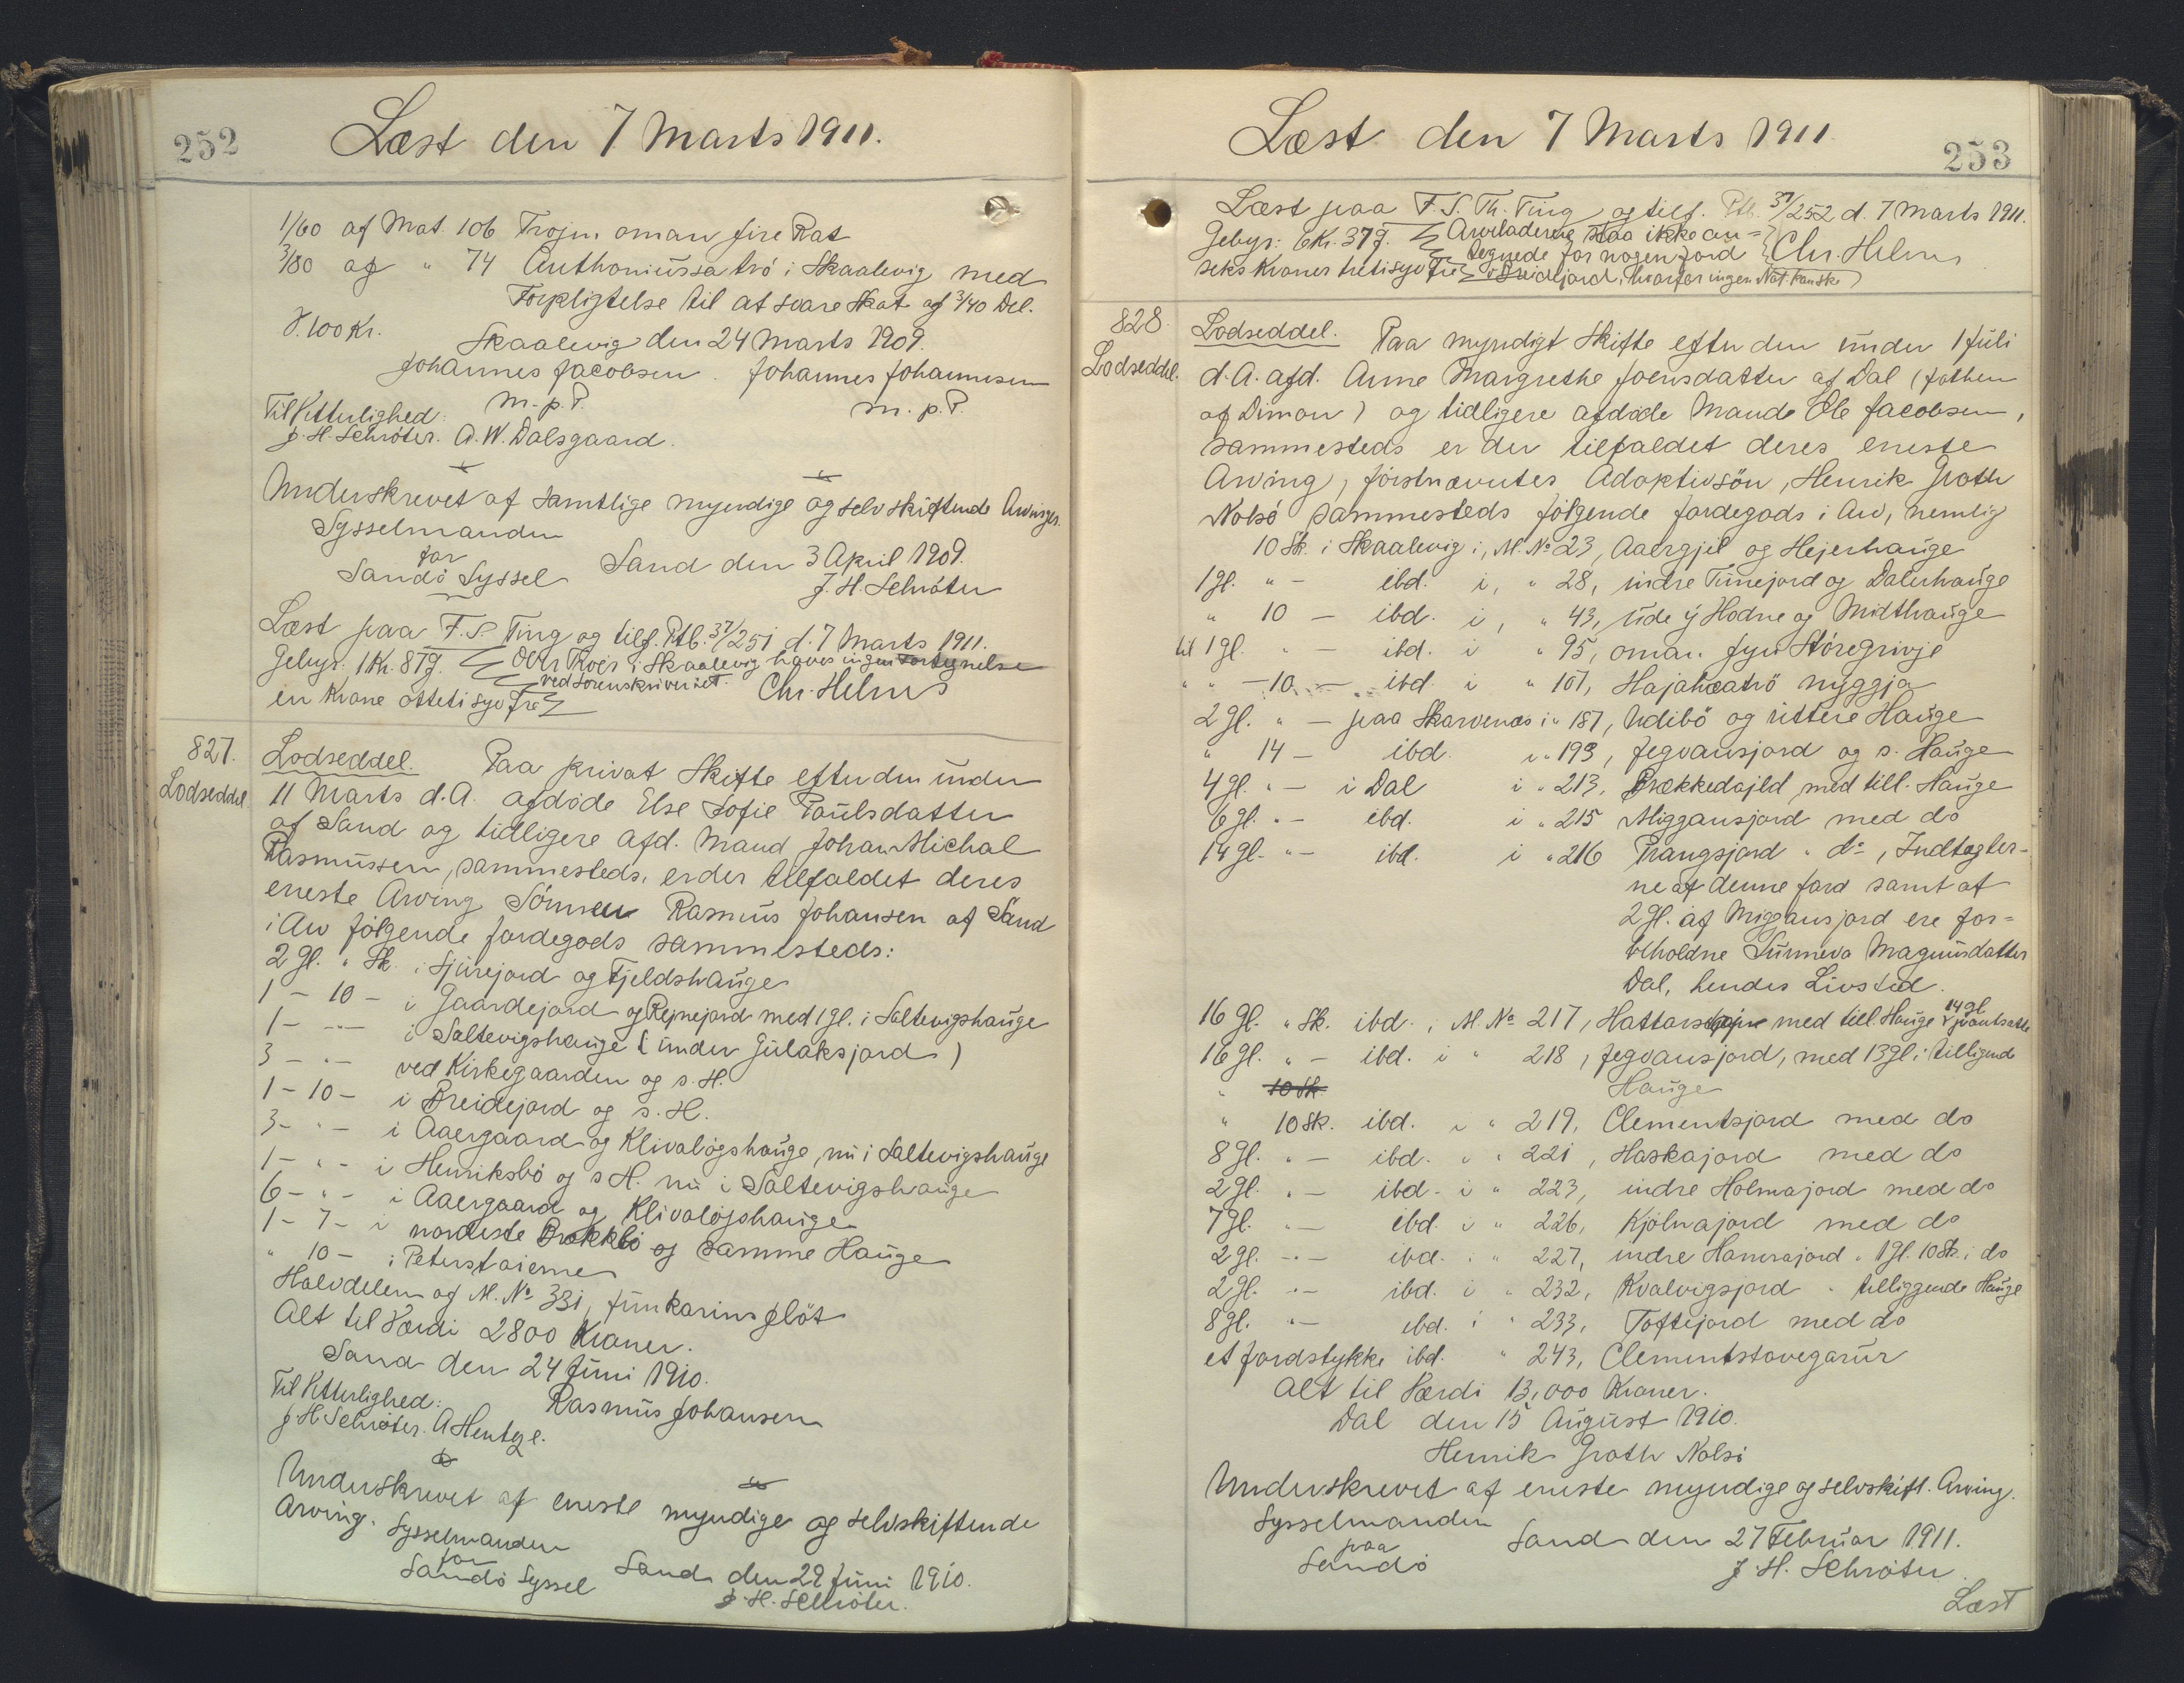 252
Læst den 7 Marts 1911.
1/60 af Mat. 106 Trojin oman fire Rat
3/80 af " 74 Anthoniussa trö i Skaalevig med
Forpligtelse til at svare Skat af 3/40 Del.
V. 100 Kr.
Skaalevig den 24 Marts 1909.
Johannes Jacobsen. Johannes Johannesen
m. p. P. m. p. P.
Til Vitterlighed:
J. H. Schröter. A. W. Dalsgaard.
Underskrevet af samtlige myndige og selvskiftende Arvinger.
Sysselmanden
for
Sandö Syssel Sand den 3 April 1909.
J. H. Schröter
Læst paa F. S. Ting og tilf. Ptb. 37/251 d. 7 Marts 1911.
Gebyr: 1 Kr. 87 Ø. Ole i Skaalevig haves ingen
ved Sorenskriveriet.
en Krone ottetisyv Øre Chr. Helms
827.
Lodseddel
Lodseddel. Paa privat Skifte efter den under
11 Marts d. A. afdöde Else Sofie Poulsdatter
af Sand og tidligere afd. Mand Johan Michal
Rasmussen, sammesteds, er der tilfaldet deres
eneste Arving Sönnen Rasmus Johansen af Sand
i Arv fölgende Jordegods sammesteds:
2 Gl. " Sk. i Sjúrejord og Fjeldshauge
1 - 10 - i Gaardejord og Rejnejord med 1 gl. i Saltevigshauge
1 - " - i Saltevigshauge (under Gulaksjord)
3 - " - ved Kirkegaarden og s. H.
1 - 10 - i Breidejord og s. H.
3 - " - i Aaergaard og Klivalögshauge, nu i Saltevigshauge
1 - " - i Henriksbö og s H. nu i Saltevigshauge
6 - " - i Aaergaard og Klivalögshauge
1 - 7 - i nordeste Brekkbö og samme Hauge
" 10 - i Peterstaierne
Halvdelen af M. No 331, Junkarinsflöt
Alt til Værdi 2800 Kroner.
Sand den 24 Juni 1910.
Til Vitterlighed: Rasmus Johansen
J. H. Schröter. A Hentze.
Underskrevet af eneste myndige og selvskiftende
Arving. Sysselmanden
for
Sandö Syssel Sand den 29 Juni 1910.
J. H. Schröter.
253
Læst den 7 Marts 1911.
Læst paa F. S. Th. Ting og tilf. Ptb. 37/252 d. 7 Marts 1911.
Gebyr: 6 Kr. 37 Ø. Arveladerne staa ikke an=
tegnede for nogen Jord Chr. Helms
seks Kroner tretisyv Øre i Breidejord, hvorfor ingen Not. kan ske
828.
Lodseddel.
Lodseddel. Paa myndigt Skifte efter den under 1 Juli
d. A. afd. Anne Margrethe Joensdatter af Dal (fothen
af Dimon) og tidligere afdöde Mande Ole Jacobsen,
sammesteds er der tilfaldet deres eneste
Arving, förstnævntes Adoptivsön, Henrik Groth
Nolsö sammesteds fölgende Jordegods i Arv, nemlig
10 Sk. i Skaalevig i, M. No 23, Aaergjil og Hejerhauge
1 gl. " - ibd. i, " 28, indre Tunejord og Dalerhauge
" 10 - ibd. i, " 43, úde y Hodne og Midthauge
til 1 gl. " - ibd. i " 95, oman. fyri Störegrivje
" " - 10 - ibd. i " 107, Hajahæatrö nyggja
2 Gl. " - paa Skarvenæs i " 187, Udibö og úttere Hauge
" 14 - ibd. i " 193, Jegvansjord og s. Hauge
4 gl. " - i Dal i " 213, Brekkedajld med till. Hauge
6 gl. " - ibd. i " 215 Miggansjord med do
14 gl. " - ibd. i " 216 Prangsjord " do, Indtægter-
ne af denne Jord samt af
2 gl. af Miggansjord ere for=
beholdne Sunneva Magnusdatter
Dal, hendes Livstid.
16 gl. " Sk. ibd. , M. No 217, med till. Hauge 14 gl pantsatte
16 gl. " - ibd. i " 218, Jegvansjord, med 13 gl. i tilligende
" 10 Sk. Hauge
" 10 Sk. ibd. i " 219, Clementsjord med do
8 gl. " - ibd. i " 221, Haskajord med do
2 gl. " - ibd. i " 223, indre Holmajord med do
7 gl. " - ibd. i " 226, Kjölnajord med do
2 gl. " - ibd. i " 227, indre Hamrajord " 1 gl. 10 Sk. i do
2 gl. " - ibd. i " 232, Kvalvigsjord " tilliggende Hauge
8 gl. " - ibd. i " 233, Toftejord med do
et Jordstykke ibd. " 243, Clementstovegarúr
Alt til Værdi 13,000 Kroner.
Dal den 15 August 1910.
Henrik Groth Nolsö
Underskrevet af eneste myndige og selvskift. Arving.
Sysselmanden
paa
Sandö Sand den 27 Februar 1911.
J. H. Schröter.
Læst